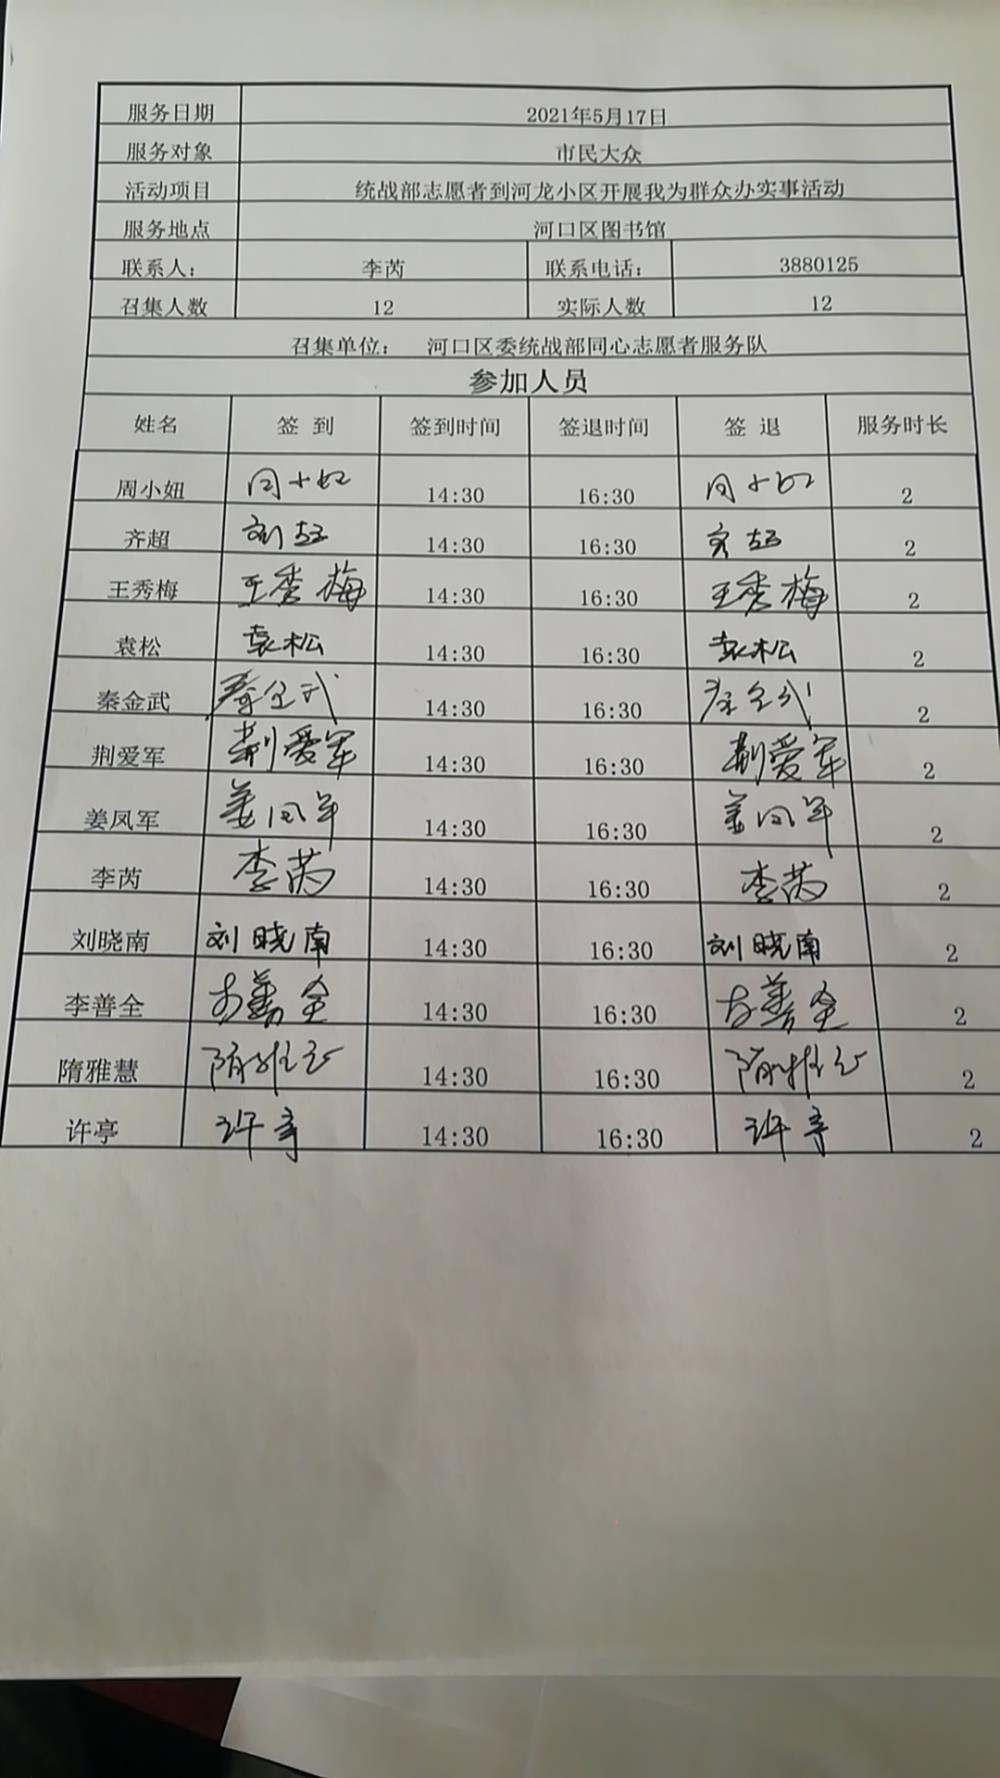 服务日期 2021年5月17日
服务对象 市民大众
活动项目 统战部志愿者到河龙小区开展我为群众办实事活动
服务地点 河口区图书馆
联系人： 李芮 联系电话： 3880125
召集人数 12 实际人数 12
召集单位： 河口区委统战部同心志愿者服务队
参加人员
姓名 签 到 签到时间 签退时间 签 退 服务时长
周小妞 周小妞 14:30 16:30 周小妞 2
齐超 14:30 16:30 齐超 2
王秀梅 王秀梅 14:30 16:30 王秀梅 2
袁松 袁松 14:30 16:30 袁松 2
秦金武 秦金武 14:30 16:30 秦金武 2
荆爱军 荆爱军 14:30 16:30 荆爱军 2
姜凤军 姜凤军 14:30 16:30 姜凤军 2
李芮 李芮 14:30 16:30 李芮 2
刘晓南 刘晓南 14:30 16:30 刘晓南 2
李善全 李善全 14:30 16:30 李善全 2
隋雅慧 隋雅慧 14:30 16:30 隋雅慧 2
许亭 许亭 14:30 16:30 许亭 2